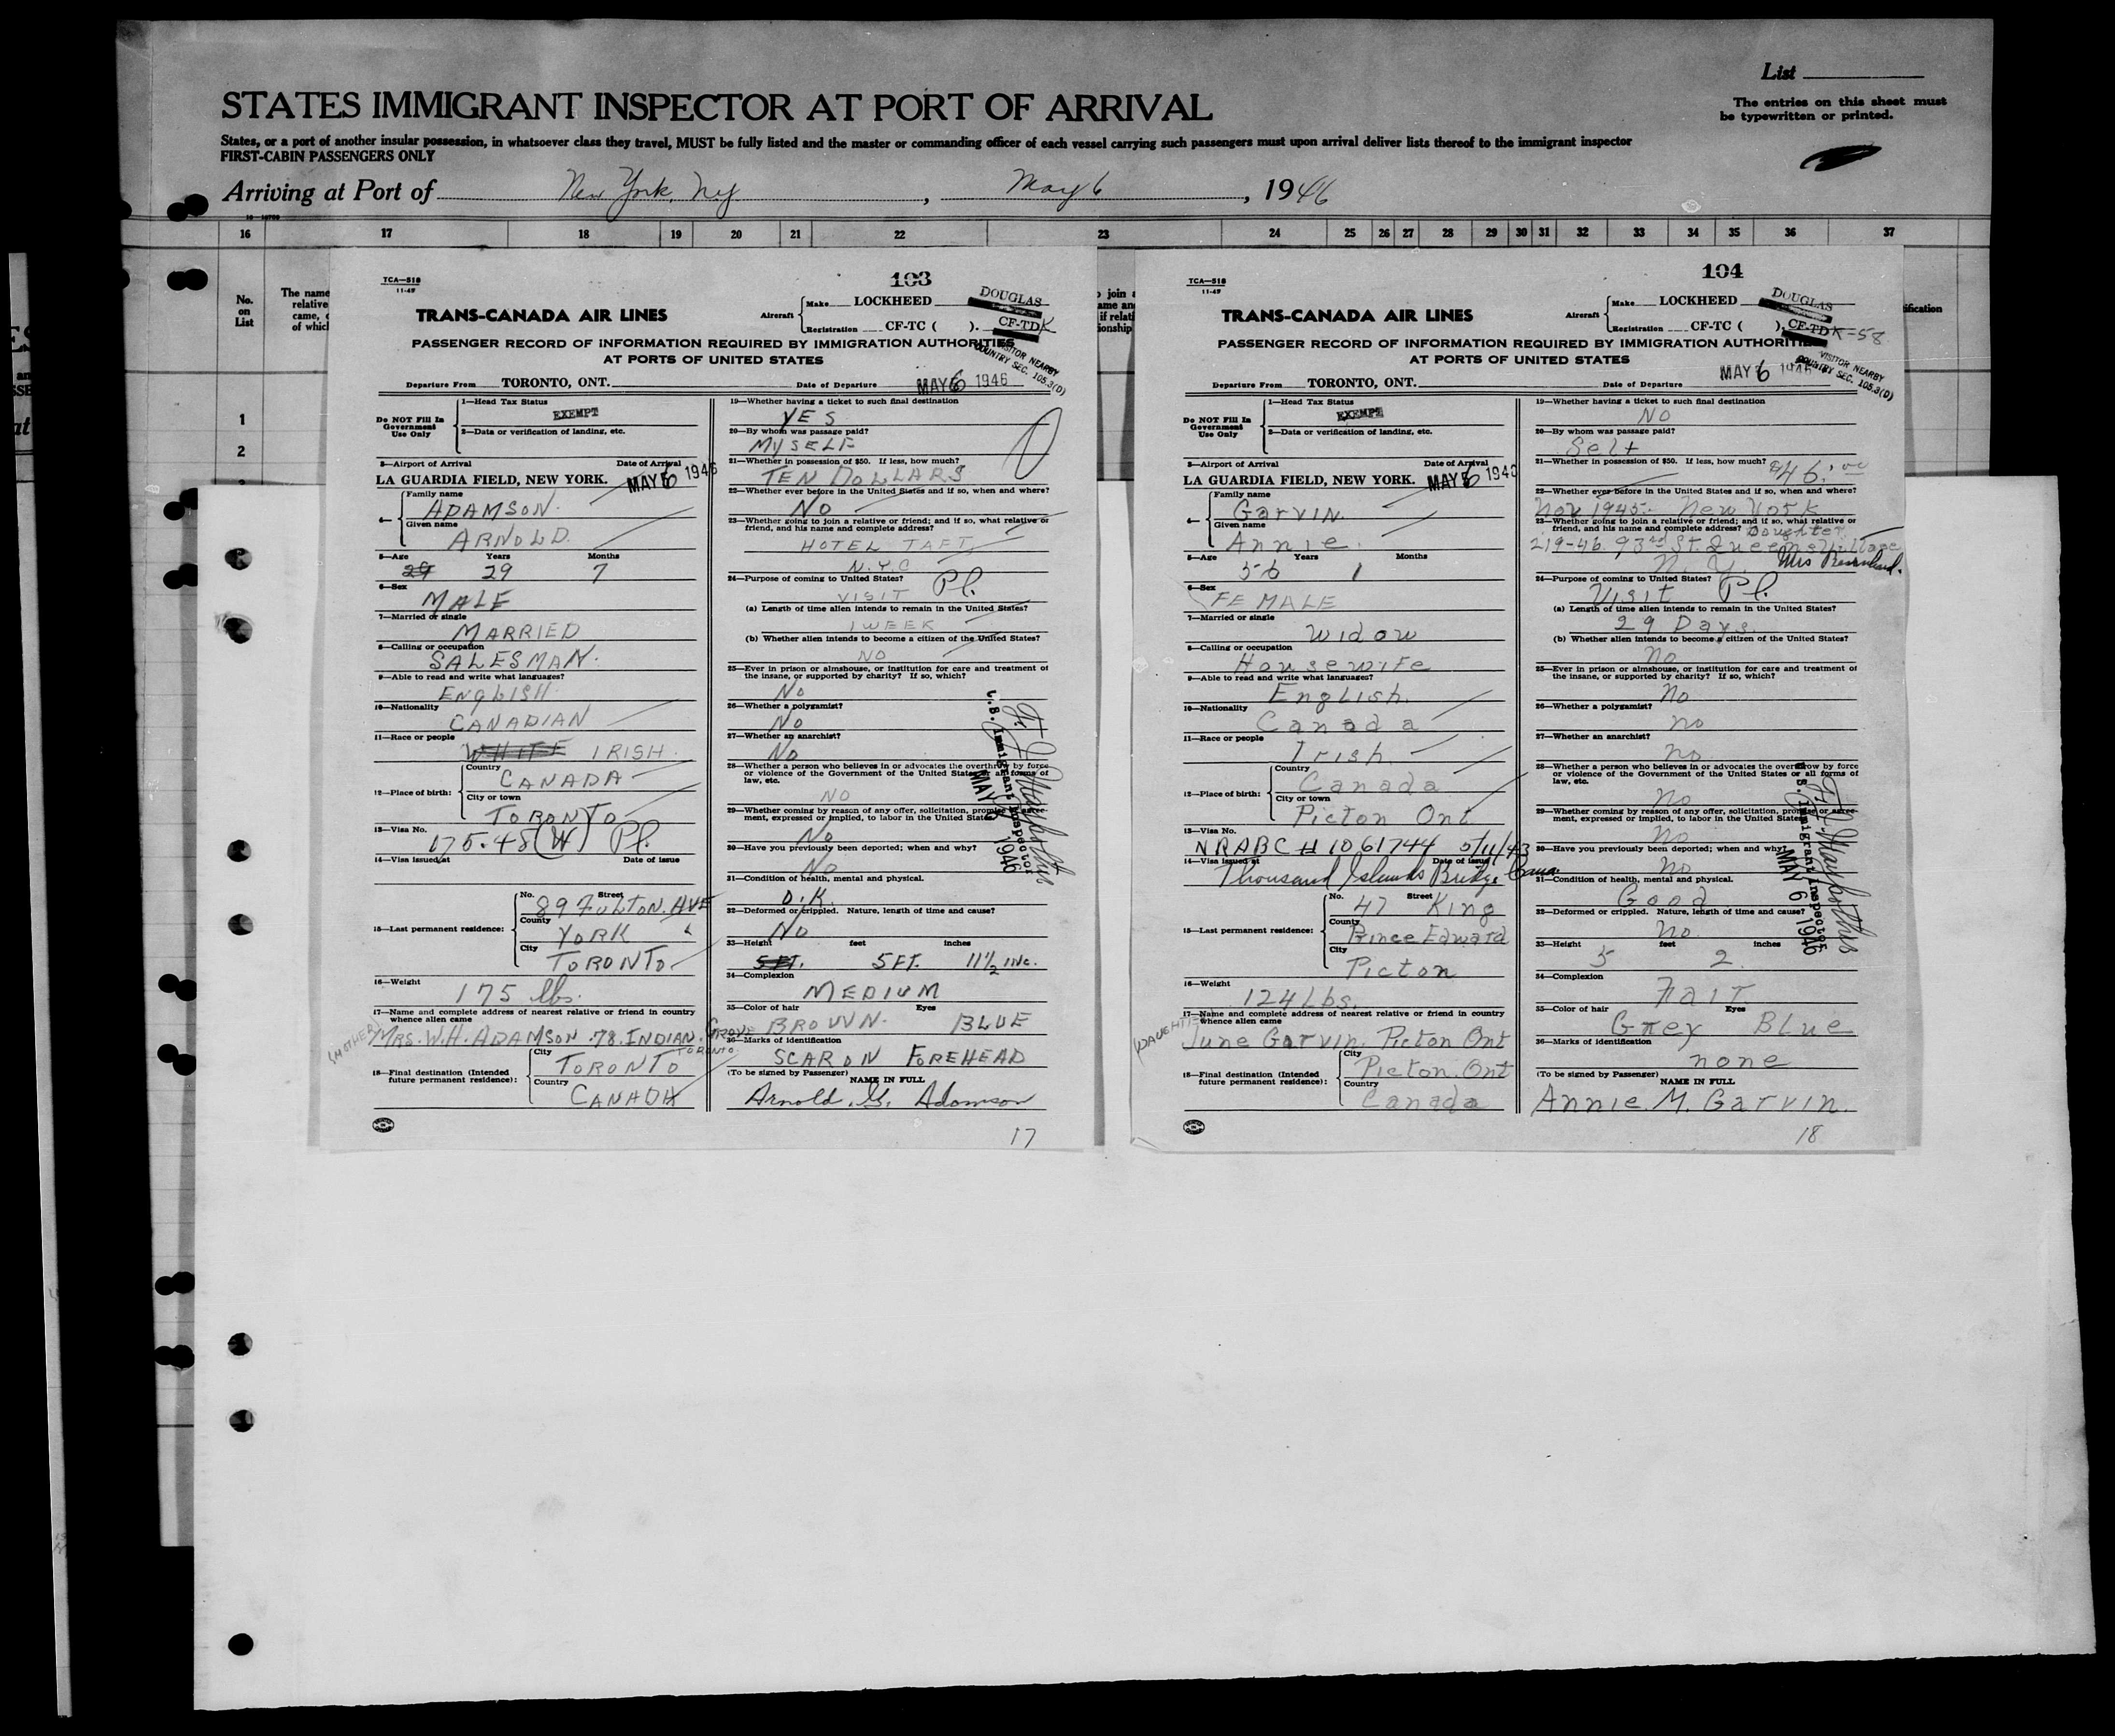 List
STATES IMMIGRANT INSPECTOR AT PORT OF ARRIVAL
The entries on this sheet must
be typewritten or printed.
States, or a port of another insular possession, in whatsoever class they travel, MUST be fully listed and the master or commanding officer of each vessel carrying such passengers must upon arrival deliver lists thereof to the immigrant inspector
FIRST-CABIN PASSENGERS ONLY
Arriving at Port of New York, Ny, May 6, 1946
16 17 18 19 20 21 22 23 24 25 26 27 28 29 30 31 32 33 34 35 36 37
No.
on
List
The name
relative
came,
of which
1
2
TCA—518
11-45
103
TRANS-CANADA AIR LINES
Aircraft
Make LOCKHEED DOUGLAS
Registration CF-TC ( ). CF-TDK
PASSENGER RECORD OF INFORMATION REQUIRED BY IMMIGRATION AUTHORITIES
AT PORTS OF UNITED STATES
VISITOR NEARBY
COUNTRY SEC. 105.3(D)
Departure From TORONTO, ONT. Date of Departure MAY 6 1946
Do NOT Fill In
Government
Use Only
1—Head Tax Status
EXEMPT
2—Data or verification of landing, etc.
3—Airport of Arrival Date of Arrival
LA GUARDIA FIELD, NEW YORK. MAY 6 1946
4—
Family name
ADAMSON.
Given name
ARNOLD.
5—Age Years Months
29 29 7
6—Sex
MALE
7—Married or single
MARRIED
8—Calling or occupation
SALESMAN.
9—Able to read and write what languages?
ENGLISH
10—Nationality
CANADIAN
11—Race or people
WHITE IRISH.
12—Place of birth:
Country
CANADA
City or town
TORONTO
13—Visa No.
175.48(W) Pl.
14—Visa issued at Date of issue
15—Last permanent residence:
No. Street
89 FULTON. AVE
County
YORK
City
TORONTO
16—Weight
175 lbs.
17—Name and complete address of nearest relative or friend in country
whence alien came
(MOTHER) MRS. W.H. ADAMSON. 78. INDIAN. GROVE
TORONTO.
18—Final destination (Intended
future permanent residence):
City
TORONTO
Country
CANADA
19—Whether having a ticket to such final destination
YES
20—By whom was passage paid?
MYSELF
21—Whether in possession of $50. If less, how much?
TEN DOLLARS
22—Whether ever before in the United States and if so, when and where?
NO
23—Whether going to join a relative or friend; and if so, what relative or
friend, and his name and complete address?
HOTEL TAFT
N.Y.C.
24—Purpose of coming to United States?
VISIT Pl.
(a) Length of time alien intends to remain in the United States?
1 WEEK
(b) Whether alien intends to become a citizen of the United States?
NO
25—Ever in prison or almshouse, or institution for care and treatment of
the insane, or supported by charity? If so, which?
No
26—Whether a polygamist?
No
27—Whether an anarchist?
No
28—Whether a person who believes in or advocates the overthrow by force
or violence of the Government of the United States or all forms of
law, etc.
NO
29—Whether coming by reason of any offer, solicitation, promise or agree-
ment, expressed or implied, to labor in the United States
No
30—Have you previously been deported; when and why?
No
31—Condition of health, mental and physical.
O.K.
32—Deformed or crippled. Nature, length of time and cause?
No
33—Height feet inches
5FT. 5FT. 11½ INC.
34—Complexion
MEDIUM
35—Color of hair Eyes
BROWN. BLUE
36—Marks of identification
SCAR ON FOREHEAD
(To be signed by Passenger)
NAME IN FULL
Arnold. G. Adamson
U.S. Immigrant Inspector
MAY 6 1946
17
TCA—518
11-45
104
TRANS-CANADA AIR LINES
Aircraft
Make LOCKHEED DOUGLAS
Registration CF-TC ( ). CF-TDK-58
PASSENGER RECORD OF INFORMATION REQUIRED BY IMMIGRATION AUTHORITIES
AT PORTS OF UNITED STATES
VISITOR NEARBY
COUNTRY SEC. 105.3(D)
Departure From TORONTO, ONT. Date of Departure MAY 6 1946
Do NOT Fill In
Government
Use Only
1—Head Tax Status
EXEMPT
2—Data or verification of landing, etc.
3—Airport of Arrival Date of Arrival
LA GUARDIA FIELD, NEW YORK. MAY 6 1946
4—
Family name
Garvin.
Given name
Annie.
5—Age Years Months
56 1
6—Sex
FEMALE
7—Married or single
Widow
8—Calling or occupation
Housewife
9—Able to read and write what languages?
English.
10—Nationality
Canada
11—Race or people
Irish.
12—Place of birth:
Country
Canada
City or town
Picton Ont
13—Visa No.
NRABC # 1061744 5/11/43
14—Visa issued at Date of issue
Thousand Islands Bridge Cana.
15—Last permanent residence:
No. Street
47 King
County
Prince Edward
City
Picton
16—Weight
124 Lbs.
17—Name and complete address of nearest relative or friend in country
whence alien came
(DAUGHTER) June Garvin, Picton Ont
18—Final destination (Intended
future permanent residence):
City
Picton. Ont
Country
Canada
19—Whether having a ticket to such final destination
NO
20—By whom was passage paid?
Self
21—Whether in possession of $50. If less, how much? $46.00
22—Whether ever before in the United States and if so, when and where?
Nov 1945. New York
23—Whether going to join a relative or friend; and if so, what relative or
friend, and his name and complete address? Daughter
219-46. 93rd St. Queens Village
N.Y. Mrs
24—Purpose of coming to United States?
Visit Pl.
(a) Length of time alien intends to remain in the United States?
29 Days.
(b) Whether alien intends to become a citizen of the United States?
no
25—Ever in prison or almshouse, or institution for care and treatment of
the insane, or supported by charity? If so, which?
no
26—Whether a polygamist?
no
27—Whether an anarchist?
no.
28—Whether a person who believes in or advocates the overthrow by force
or violence of the Government of the United States or all forms of
law, etc.
no
29—Whether coming by reason of any offer, solicitation, promise or agree-
ment, expressed or implied, to labor in the United States
no
30—Have you previously been deported; when and why?
no
31—Condition of health, mental and physical.
Good
32—Deformed or crippled. Nature, length of time and cause?
no.
33—Height feet inches
5 2
34—Complexion
Fair
35—Color of hair Eyes
Grey Blue
36—Marks of identification
none
(To be signed by Passenger)
NAME IN FULL
Annie. M. Garvin.
U.S. Immigrant Inspector
MAY 6 1946
18